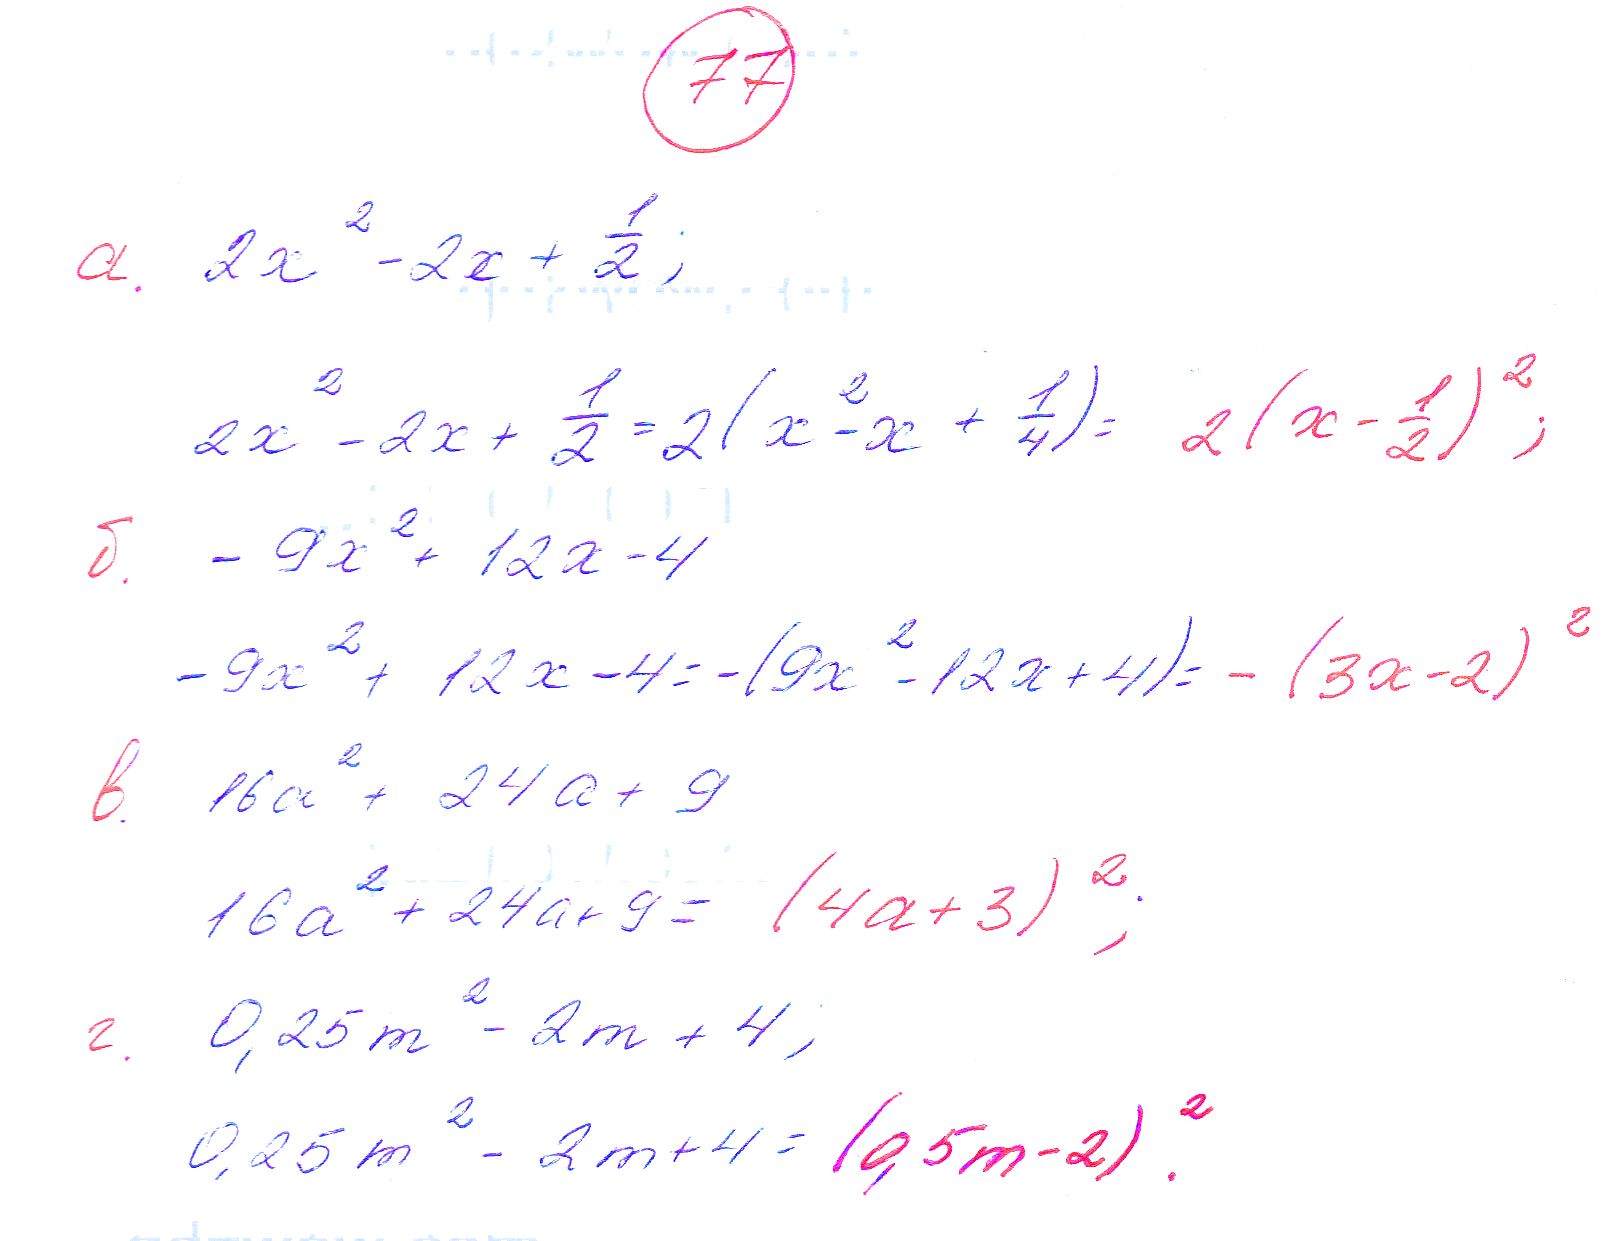 77
а. 2x² - 2x + 1/2;
2x² - 2x + 1/2 = 2(x² - x + 1/4) = 2(x - 1/2)²;
б. - 9x² + 12x - 4
- 9x² + 12x - 4 = -(9x² - 12x + 4) = - (3x - 2)²
в. 16a² + 24a + 9
16a² + 24a + 9 = (4a + 3)²;
г. 0,25m² - 2m + 4;
0,25m² - 2m + 4 = (0,5m - 2)².